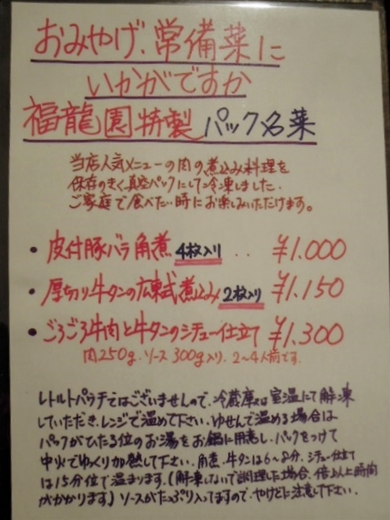 おみやげ、常備菜に
いかがですか
福龍園特製 パック名菜
当店人気メニューの肉の煮込み料理を
保存のきく、真空パックにして冷凍しました。
ご家庭で食べたい時にお楽しみいただけます。
・皮付豚バラ角煮 4枚入り ‥ ¥1.000
・厚切り牛タンの広東式煮込み 2枚入り ¥1.150
・ごろごろ牛肉と牛タンのシチュー仕立て ¥1.300
肉250g、ソース300g入り、2~4人前です。
レトルトパウチではございませんので、冷蔵庫又は室温にて解凍
していただき、レンジで温めて下さい。ゆせんで温める場合は
パックがひたる位のお湯をお鍋に用意し、パックをつけて
中火でゆっくり加熱して下さい。角煮、牛タンは6~8分、シチュー仕立て
は15分位で温まります。(解凍しないで調理した場合、倍以上時間
がかかります)ソースがたっぷり入ってますので、やけどに注意して下さい。